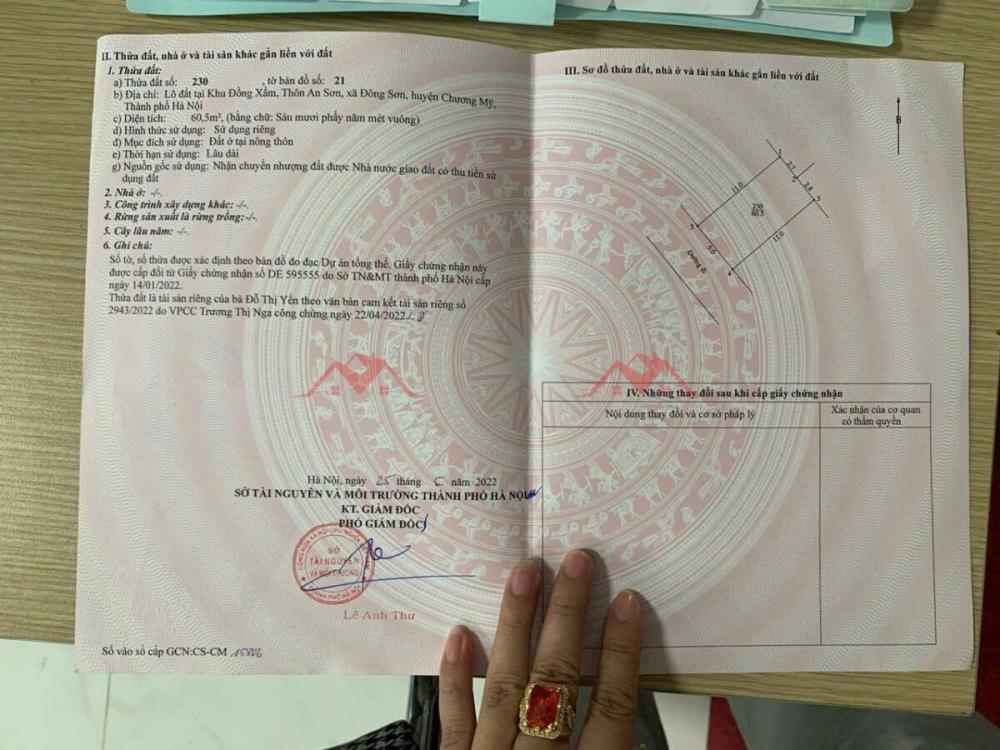 II. Thửa đất, nhà ở và tài sản khác gắn liền với đất
1. Thửa đất:
a) Thửa đất số: 230 , tờ bản đồ số: 21
b) Địa chỉ: Lô đất tại Khu Đồng Xẩm, Thôn An Sơn, xã Đông Sơn, huyện Chương Mỹ,
Thành phố Hà Nội
c) Diện tích: 60,5m², (bằng chữ: Sáu mươi phẩy năm mét vuông)
d) Hình thức sử dụng: Sử dụng riêng
đ) Mục đích sử dụng: Đất ở tại nông thôn
e) Thời hạn sử dụng: Lâu dài
g) Nguồn gốc sử dụng: Nhận chuyển nhượng đất được Nhà nước giao đất có thu tiền sử
dụng đất
2. Nhà ở: -/-.
3. Công trình xây dựng khác: -/-.
4. Rừng sản xuất là rừng trồng: -/-.
5. Cây lâu năm: -/-.
6. Ghi chú:
Số tờ, số thửa được xác định theo bản đồ đo đạc Dự án tổng thể. Giấy chứng nhận này
được cấp đổi từ Giấy chứng nhận số DE 595555 do Sở TN&MT thành phố Hà Nội cấp
ngày 14/01/2022.
Thửa đất là tài sản riêng của bà Đỗ Thị Yến theo văn bản cam kết tài sản riêng số
2943/2022 do VPCC Trương Thị Nga công chứng ngày 22/04/2022./.
Hà Nội, ngày 25 tháng 5 năm 2022
SỞ TÀI NGUYÊN VÀ MÔI TRƯỜNG THÀNH PHỐ HÀ NỘI
KT. GIÁM ĐỐC
PHÓ GIÁM ĐỐC
SỞ
TÀI NGUYÊN
VÀ MÔI TRƯỜNG
Lê Anh Thư
Số vào sổ cấp GCN:CS-CM
III. Sơ đồ thửa đất, nhà ở và tài sản khác gắn liền với đất
B
2.7
2.8
11.0
230
60.5
11.0
5.0
Đường đi
IV. Những thay đổi sau khi cấp giấy chứng nhận
Nội dung thay đổi và cơ sở pháp lý
Xác nhận của cơ quan
có thẩm quyền